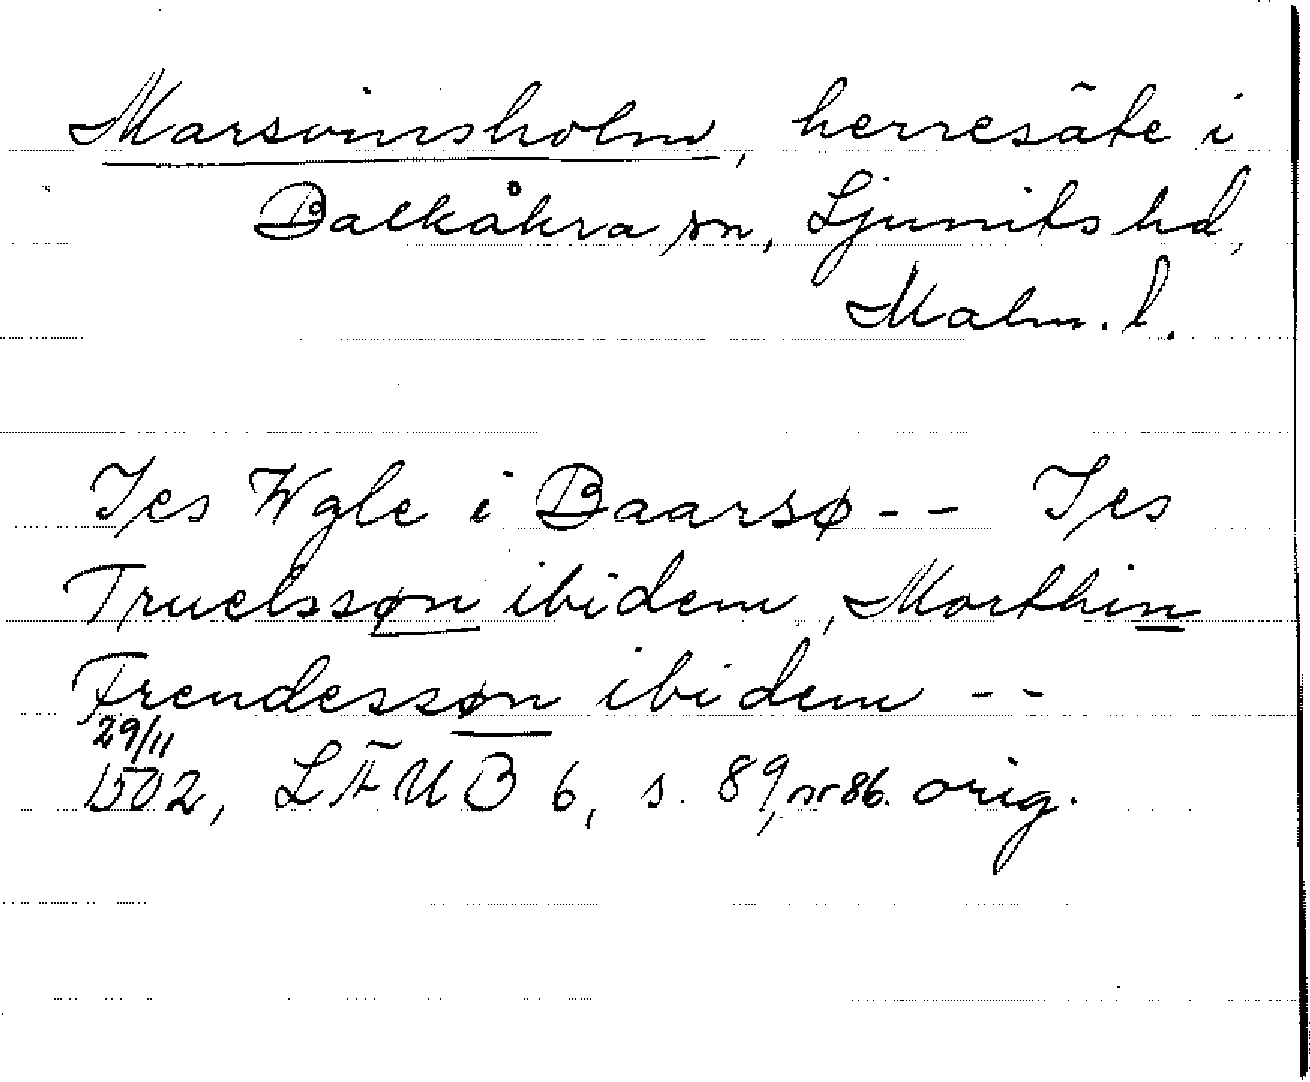 Marsvinsholm, herresäte i
Balkåkra sn, Ljunits hd,
Malm. l.
Jes Wgle i Baarsø-- Jes
Truelssøn ibidem, Morthin
Frendessøn ibidem --
29/11
1502, LÄUB 6, s. 89, nr 86. orig.